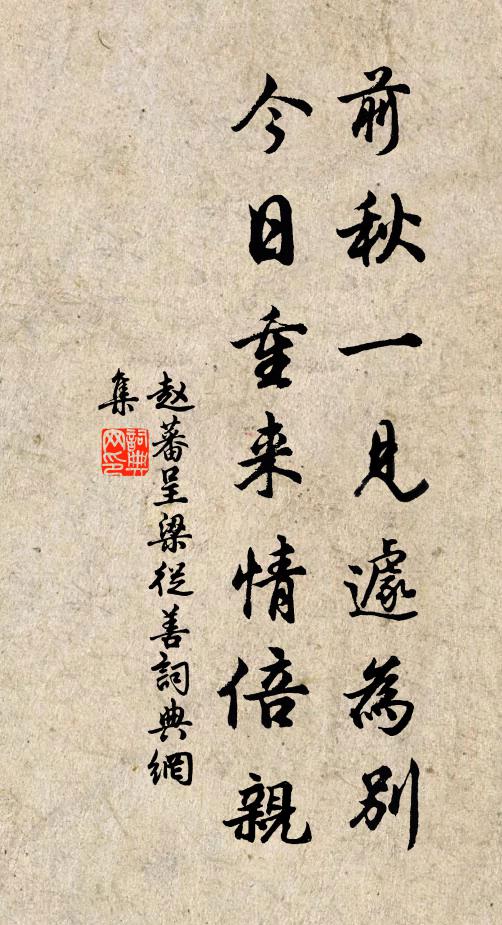 前秋一見遽為別
今日重来情倍親
赵蕃呈梁從善詞典網
集
詞典网印